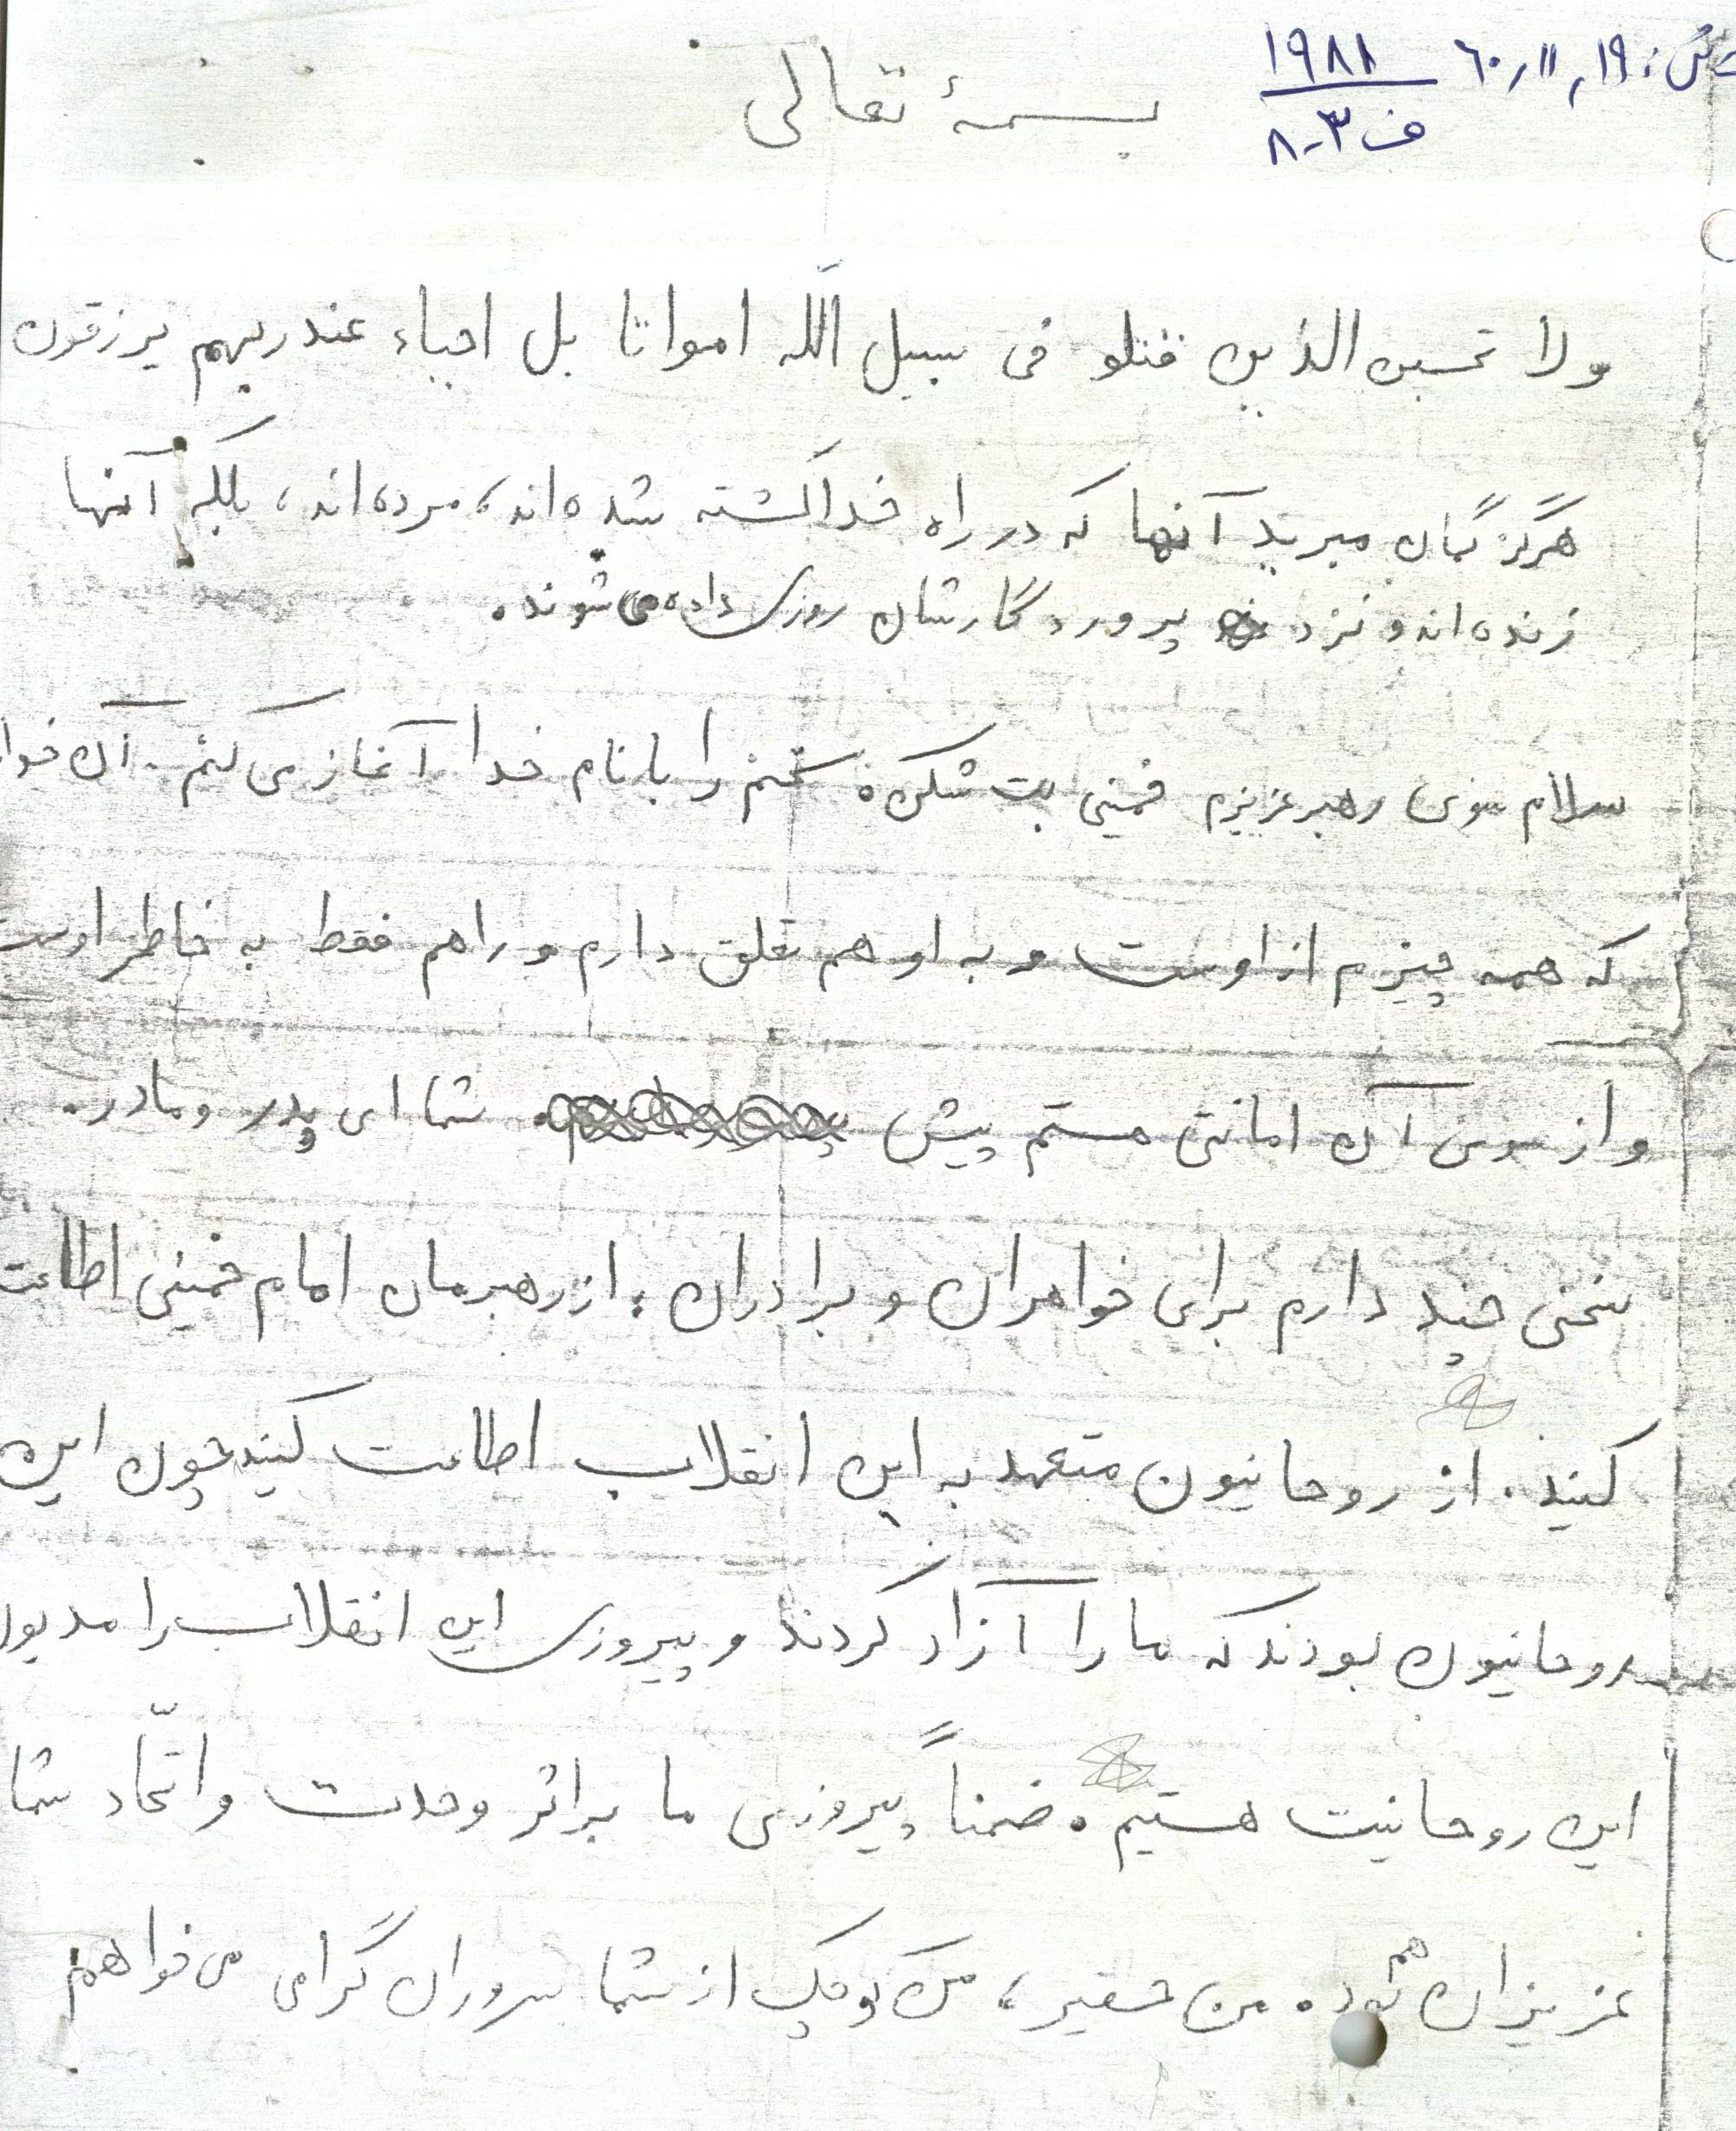 ۶۰٫۱۱٫۱۹ ۱۹۸۸
ف ۳-۸
بسمهٔ تعالی
ولا تحسبن الذین قتلو فی سبیل اللّه امواتا بل احیاء عند ربهم یرزقون
هرگز گمان مبرید آنها که در راه خدا کشته شده‌اند، مرده‌اند، بلکه آنها
زنده‌اند و نزد پروردگارشان روزی داده می‌شوند.
سلام سوی رهبر عزیزم خمینی بت شکن. سخنم را با نام خدا آغاز می کنم. آن خدا
که همه چیزم از اوست و به او هم تعلق دارم و راهم فقط به خاطر اوست
و از سوی آن امانتی هستم پیش شما ای پدر و مادر.
سخنی چند دارم برای خواهران و برادران: از رهبرمان امام خمینی اطاعت
کنید. از روحانیون متعهد به این انقلاب اطاعت کنید چون این
روحانیون بودند که ما را آزاد کردند و پیروزی این انقلاب را مدیون
این روحانیت هستیم. ضمناً پیروزی ما براثر وحدت و اتّحاد شما
عزیزان هم بود. من حقیر، من کوچک از شما سروران گرامی می خواهم